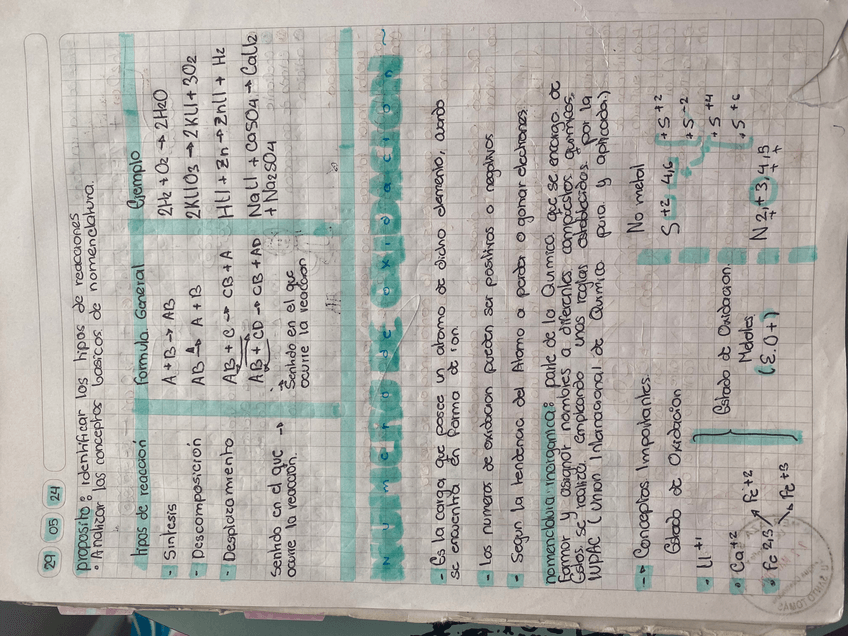 29 05 24
proposito: Identificar los tipos de reacciones
• Analizar los conceptos basicos de nomenclatura.
tipos de reacción Formula General Ejemplo
- Sintesis A + B → AB 2H2 + O2 → 2H2O
- Descomposición AB → A + B 2KClO3 → 2KCl + 3O2
- Desplazamiento AB + C → CB + A HCl + Zn → ZnCl + H2
AB + CD → CB + AD NaCl + CaSO4 → CaCl2
+ Na2SO4
Sentido en el que → Sentido en el que
ocurre la reacción. ocurre la reaccion
NUMERO DE OXIDACION
Numero de oxidacion
- Es la carga que posee un atomo de dicho elemento, cuando
se encuentra en forma de ion.
- Los numeros de oxidacion pueden ser positivos o negativos
- Segun la tendencia del Atomo a perder o ganar electrones.
nomenclatura inorganica: parte de la Quimica que se encarga de
formar y asignar nombres a diferentes compuestos quimicos,
Estos se realiza empleando unas reglas establecidas por la
IUPAC (Union Internacional de Quimica pura y aplicada.)
→ Conceptos Importantes
Estado de Oxidación No metal
• Li +1 S +2 4,6 +S+2
+S-2
• Ca+2 Estado de Oxidacion +S+4
Metales +S+6
• Fe 2,3 Fe+2 (E.O+) N 2,+3,4,5
Fe+3